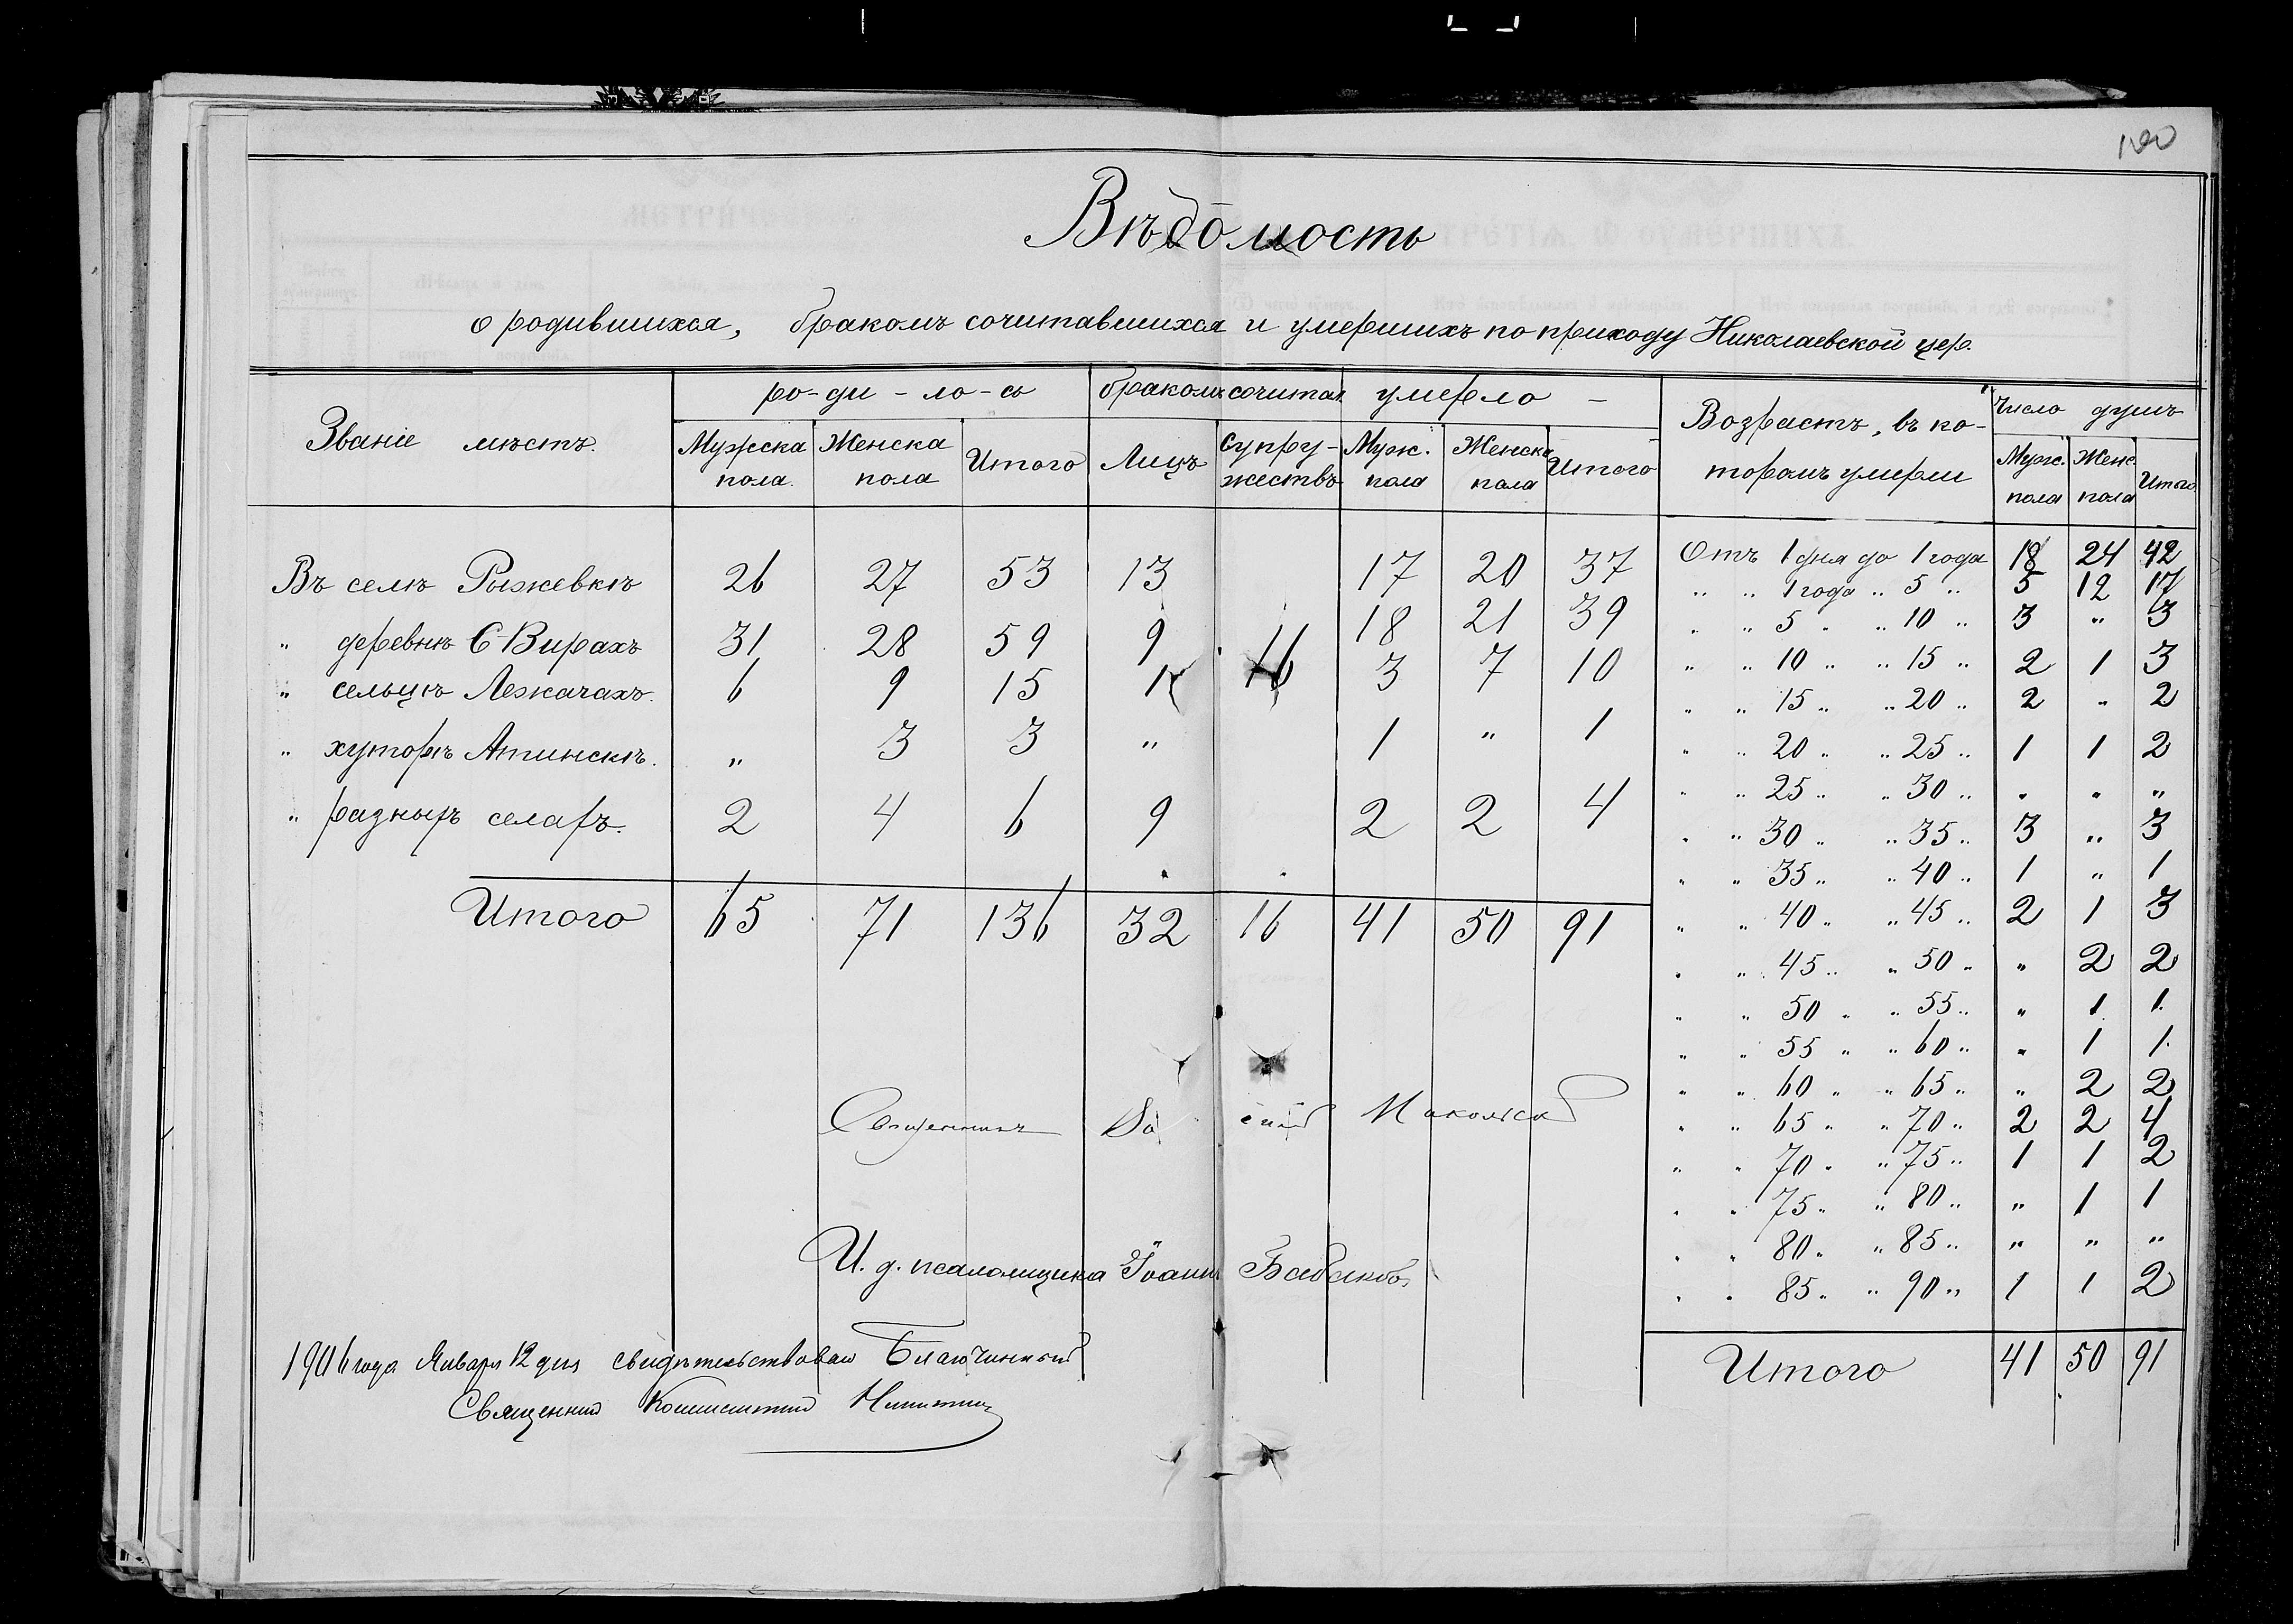 Вѣдомость
о родившихся, бракомъ сочитавшихся и умершихъ по приходу Николаевской цер.
Званіе мѣстъ. ро-ди-ло-сь бракомъ сочитал. умерло — Возрастъ, въ ко- Число душъ
Мужска Женска Итого Лицъ супру- Муж. Женска Итого торомъ умерли Муж. Женс. Итого
пола. пола жествъ пола пола пола пола
Въ селѣ Рыжевкѣ 26 27 53 13 17 20 37
„ деревнѣ С-Вирахъ 31 28 59 9 16 18 21 39
„ сельцѣ Лежачахъ. 6 9 15 1 3 7 10
„ хуторѣ Атинскѣ. „ 3 3 „ 1 „ 1
„ разныхъ селахъ. 2 4 6 9 2 2 4
Итого 65 71 136 32 16 41 50 91
Отъ 1 дня до 1 года 18 24 42
„ „ 1 года „ 5 „ 5 12 17
„ „ 5 „ „ 10 „ 3 „ 3
„ „ 10 „ „ 15 „ 2 1 3
„ „ 15 „ „ 20 „ 2 „ 2
„ „ 20 „ „ 25 „ 1 1 2
„ „ 25 „ „ 30 „ „ „ „
„ „ 30 „ „ 35 „ 3 „ 3
„ „ 35 „ „ 40 „ 1 „ 1
„ „ 40 „ „ 45 „ 2 1 3
„ „ 45 „ „ 50 „ „ 2 2
„ „ 50 „ „ 55 „ „ 1 1
„ „ 55 „ „ 60 „ „ 1 1
„ „ 60 „ „ 65 „ „ 2 2
„ „ 65 „ „ 70 „ 2 2 4
„ „ 70 „ „ 75 „ 1 1 2
„ „ 75 „ „ 80 „ „ 1 1
„ „ 80 „ „ 85 „ „ „ „
„ „ 85 „ „ 90 „ 1 1 2
Итого 41 50 91
Священникъ
И. д. псаломщика Іоаннъ Бабаковъ
1906 года Января 12 дня свидѣтельствовалъ Благочинный
Священник Константин Никитин